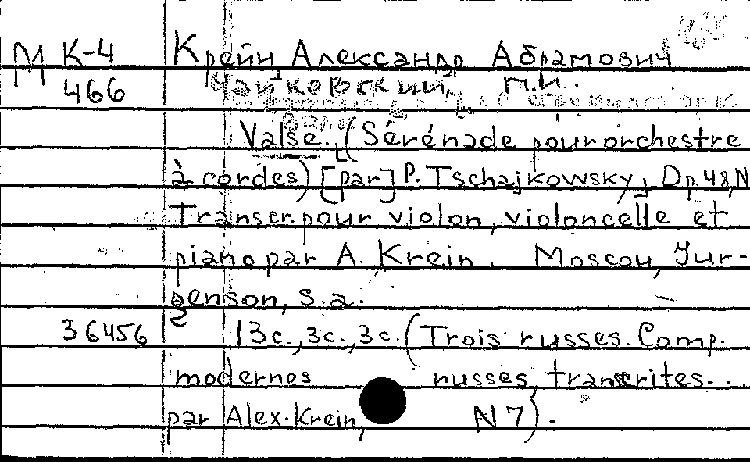 М К-4 Крейн Александр Абрамович
466 Чайковский, П.И.
Valse. (Sérénade pour orchestre
à cordes) [par] P. Tschajkowsky, Op. 48, N
Transcr. pour violon, violoncelle et
piano par A. Krein. Moscou, Jur-
genson, s.a.
36456 13c., 3c., 3c. (Trois russes. Comp.
modernes russes, transcrites..
par Alex. Krein, N 7).